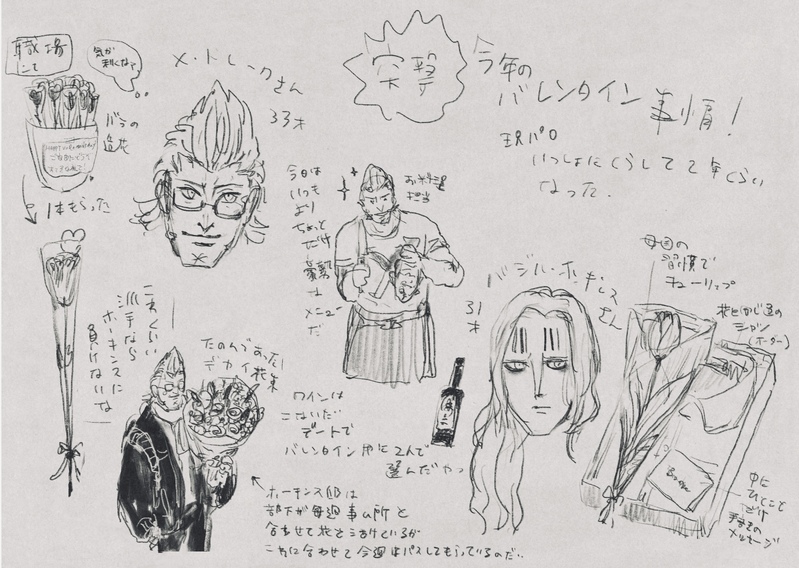 突撃
今年の
バレンタイン事情!
現パロ
いっしょにくらして2年くらい
なった.
職場
にて
気が
利くなァ
バラの
造花
1本もらった
X・ドレークさん
33才
今日は
いつも
より
ちょっと
だけ
豪華
な
メニュー
だ
お料理
担当
バジル・ホーキンスさん
31才
母国の
習慣で
チューリップ
花とかじ屋の
シャツ
(オーダー)
中に
ひとこと
だけ
手書きの
メッセージ
これくらい
派手なら
ホーキンスに
負けないな
たのんであった!
デカイ花束
ワインは
こないだ
デートで
バレンタイン用に2人で
選んだやつ
ホーキンス(邸)は
部下が毎週事ム所と
合わせて花をうけているが
これに合わせて今週はパスしてもらっているのだ..